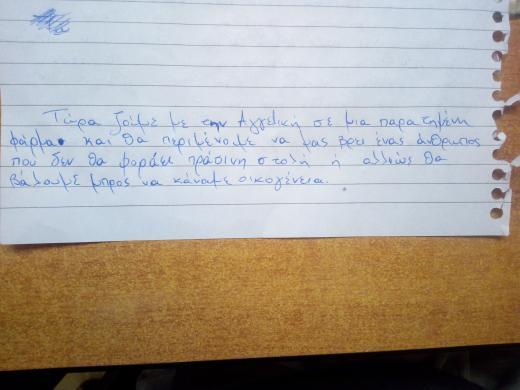 Τώρα ζούμε με την Αγγελική σε μια παρατημένη
φάρμα και θα περιμένουμε να μας βρει ένας άνθρωπος
που δεν θα φοράει πράσινη στολή ή αλλιώς θα
βάλουμε μπρος να κάνομε οικογένεια.